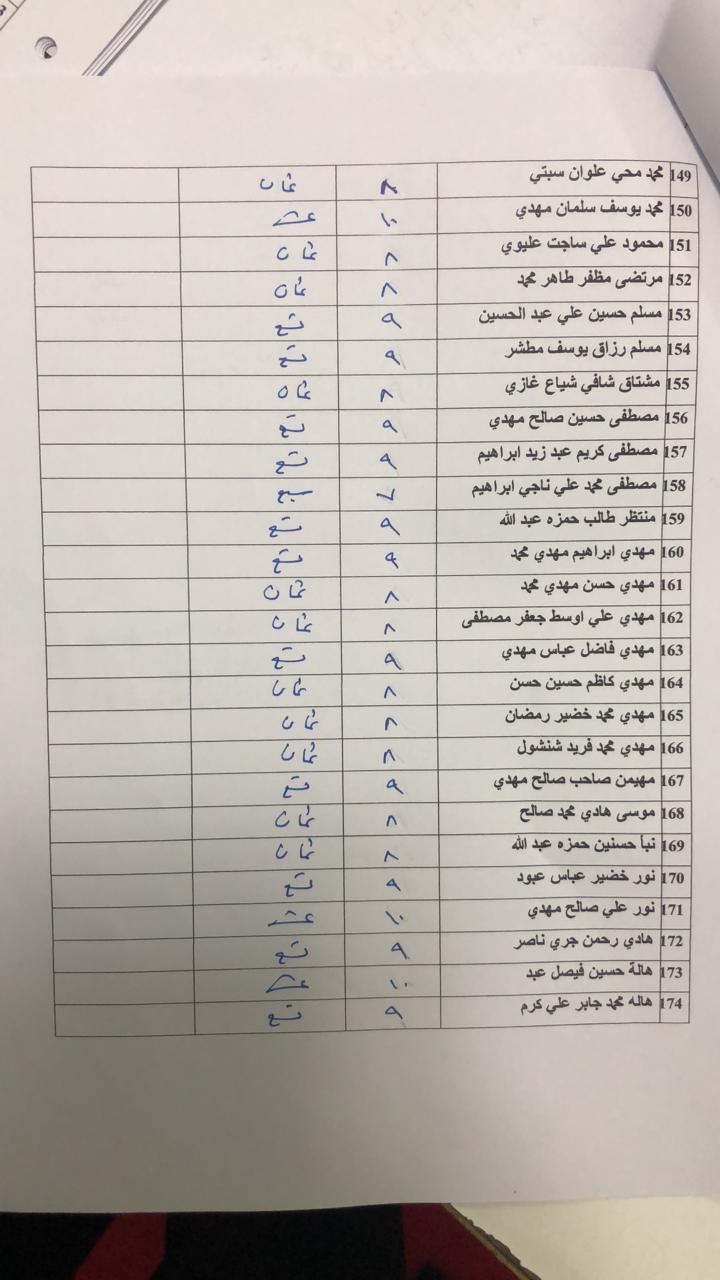 149 محمد محي علوان سبتي ٨ ثمان
150 محمد يوسف سلمان مهدي ١٠ عشر
151 محمود علي ساجت عليوي ٨ ثمان
152 مرتضى مظفر طاهر محمد ٨ ثمان
153 مسلم حسين علي عبد الحسين ٩ تسع
154 مسلم رزاق يوسف مطشر ٩ تسع
155 مشتاق شافي شياع غازي ٨ ثمان
156 مصطفى حسين صالح مهدي ٩ تسع
157 مصطفى كريم عبد زيد ابراهيم ٩ تسع
158 مصطفى محمد علي ناجي ابراهيم ٧ سبع
159 منتظر طالب حمزه عبد الله ٩ تسع
160 مهدي ابراهيم مهدي محمد ٩ تسع
161 مهدي حسن مهدي محمد ٨ ثمان
162 مهدي علي اوسط جعفر مصطفى ٨ ثمان
163 مهدي فاضل عباس مهدي ٩ تسع
164 مهدي كاظم حسين حسن ٨ ثمان
165 مهدي محمد خضير رمضان ٨ ثمان
166 مهدي محمد فريد شنشول ٨ ثمان
167 مهيمن صاحب صالح مهدي ٩ تسع
168 موسى هادي محمد صالح ٨ ثمان
169 نبأ حسنين حمزه عبد الله ٨ ثمان
170 نور خضير عباس عبود ٩ تسع
171 نور علي صالح مهدي ١٠ عشر
172 هادي رحمن جري ناصر ٩ تسع
173 هالة حسين فيصل عبد ١٠ عشر
174 هاله محمد جابر علي كرم ٩ تسع